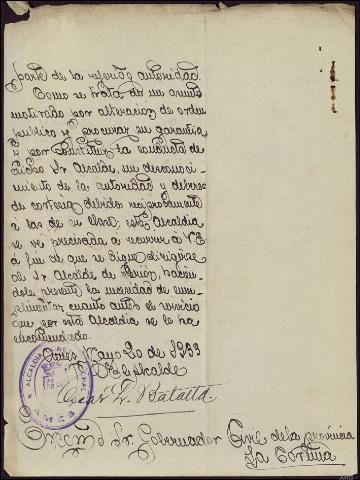 parte de la referida autoridad.
Como se trata de un asunto
motivado por alteración de orden
publico y procurar su garantía,
y por constituir la conducta de
dicho Sr Alcalde, un desconoci-
miento de la autoridad y deberes
de cortesia debidos reciprocamente
á las de su clase, esta Alcaldia
se ve precisada a recurrir a V.E.
á fin de que se digne dirigirse
al Sr Alcalde de Teo, hacien-
dole presente la necesidad de cum-
plimentar cuanto antes el servicio
que por esta Alcaldia se le ha
encomendado.
Ames, Mayo 20 de 1933
El Alcalde
Oscar L. Batalla
ALCALDIA
AMES
Excmo Sr. Gobernador Civil de la provincia
La Coruña